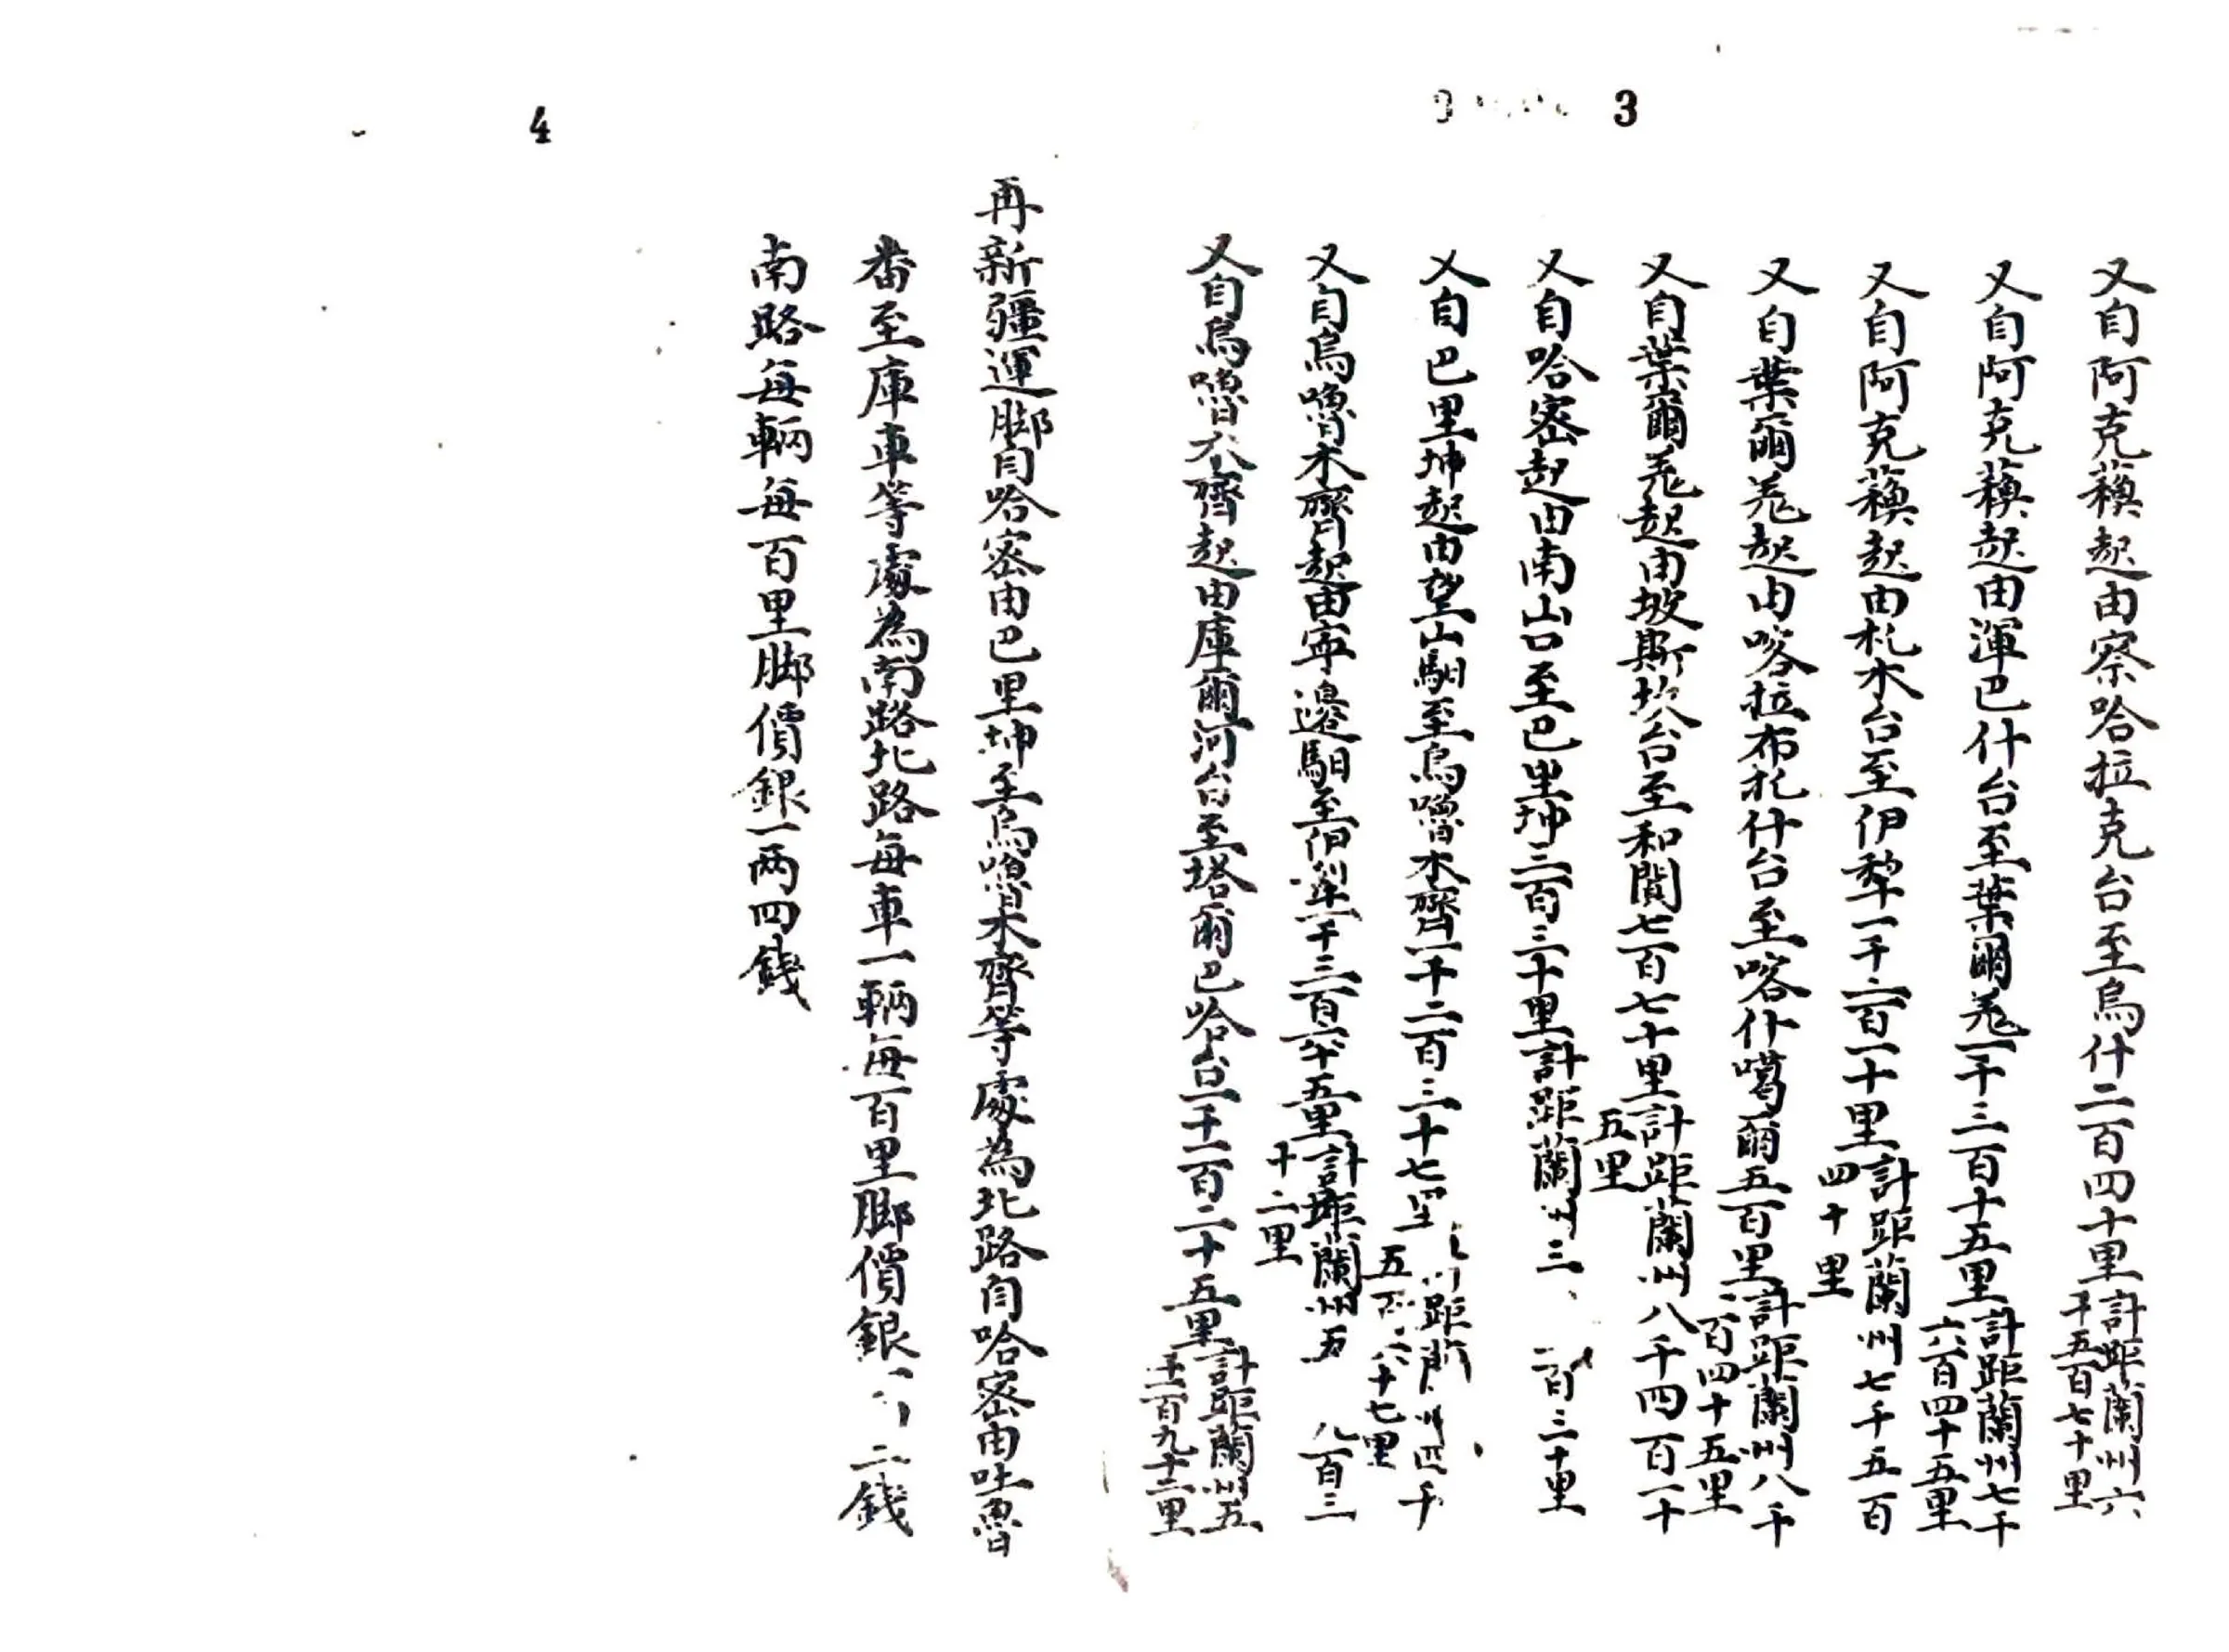 3
又自阿克蘓起由察哈拉克台至烏什二百四十里計距蘭州六千五百七十里
又自阿克蘓起由渾巴什台至葉爾羌一千三百十五里計距蘭州七千六百四十五里
又自阿克蘓起由札木台至伊犂一千二百一十里計距蘭州七千五百四十里
又自葉爾羌起由喀拉布札什台至喀什噶爾五百里計距蘭州八千一百四十五里
又自葉爾羌起由坡斯坎台至和闐七百七十里計距蘭州八千四百一十五里
又自哈密起由南山口至巴里坤三百三十里計距蘭州三 三十里
又自巴里坤起由望山馹至烏嚕木齊一千二百三十七里 距 四千五 六十七里
又自烏嚕木齊起由寧邊馹至伊犂一千三百六十五里計距蘭州五 八百三十二里
又自烏嚕木齊起由庫爾河台至塔爾巴哈台一千一百二十五里計距蘭州五千一百九十二里
4
再新疆運脚自哈密由巴里坤至烏嚕木齊等處為北路自哈密由吐魯
番至庫車等處為南路北路每車一輛每百里脚價銀 二錢
南路每輛每百里脚價銀一兩四錢